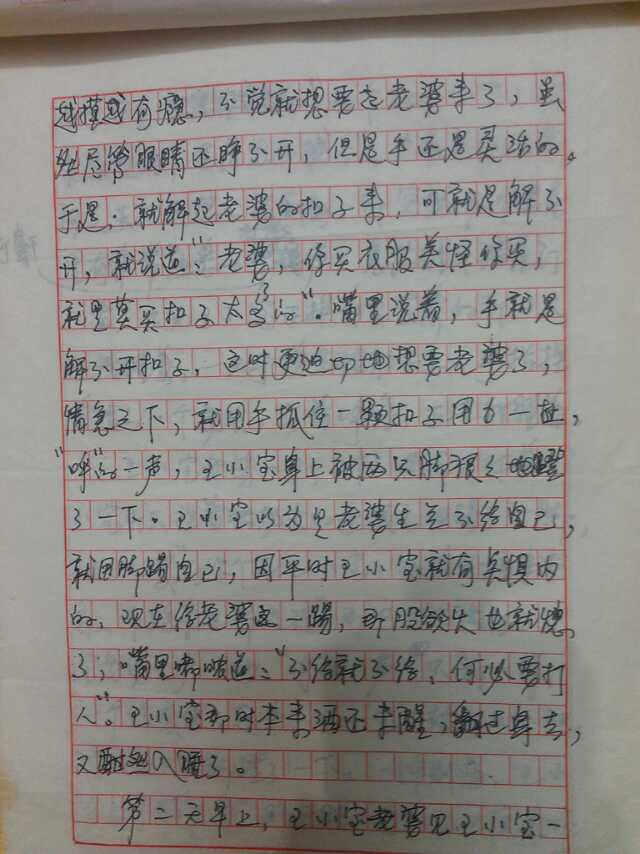 越摸越有瘾，不觉就想要起老婆来了，虽
然尽管眼睛还睁不开，但是手还是灵活的。
于是．就解起老婆的扣子来，可就是解不
开，就说道：“老婆，你买衣服莫怪你买，
就是莫买扣子太多了的”。嘴里说着，手就是
解不开扣子，这时更迫切地想要老婆了，
情急之下，就用手抓住一颗扣子用力一扯，
“哗”的一声，王小宝身上被两只脚狠狠地蹬
了一下。王小宝以为是老婆生气不给自己，
就用脚踢自己，因平时王小宝就有点惧内
的，现在给老婆这一踢，那股欲火也就熄
了，嘴里嘟哝道：“不给就不给，何必要打
人”。王小宝那时本来酒还未醒，翻过身去，
又酣然入睡了。
第二天早上，王小宝老婆见王小宝一